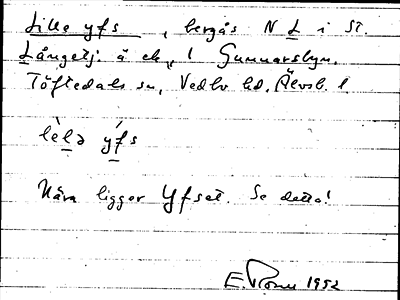 Lille yfs, bergås N L i St.
Långetj. å ek., i Gunnarsbyn.
Töftedals sn, Vedbo hd. Älvsb. l.
lèlə yfs
Nära ligger Yfset. Se detta!
E. 1952